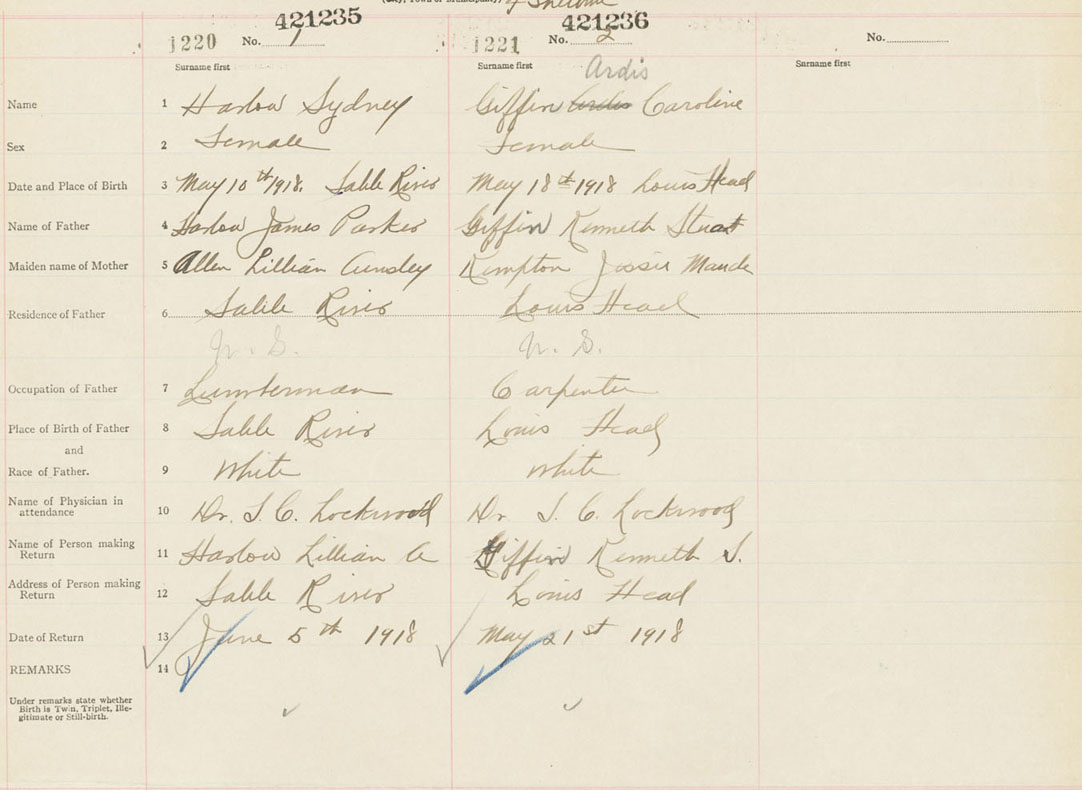 421235 421236
1220 No. 1 1221 No. 2 No.
Surname first Surname first Surname first
Ardis
Name 1 Harlow Sydney Giffin Caroline
Sex 2 Female Female
Date and Place of Birth 3 May 10th 1918. Sable River May 18th 1918 Louis Head
Name of Father 4 Harlow James Parker Giffin Kenneth Stuart
Maiden name of Mother 5 Allen Lillian Kempton Jessie Maude
Residence of Father 6 Sable River Louis Head
N. S. N. S.
Occupation of Father 7 Lumberman Carpenter
Place of Birth of Father 8 Sable River Louis Head
and
Race of Father. 9 White White
Name of Physician in
attendance 10 Dr. S. C. Lockwood Dr S. C. Lockwood
Name of Person making
Return 11 Harlow Lillian A Giffin Kenneth S.
Address of Person making
Return 12 Sable River Louis Head
Date of Return 13 June 5th 1918 May 21st 1918
REMARKS 14
Under remarks state whether
Birth is Twin, Triplet, Ille-
gitimate or Still-birth.